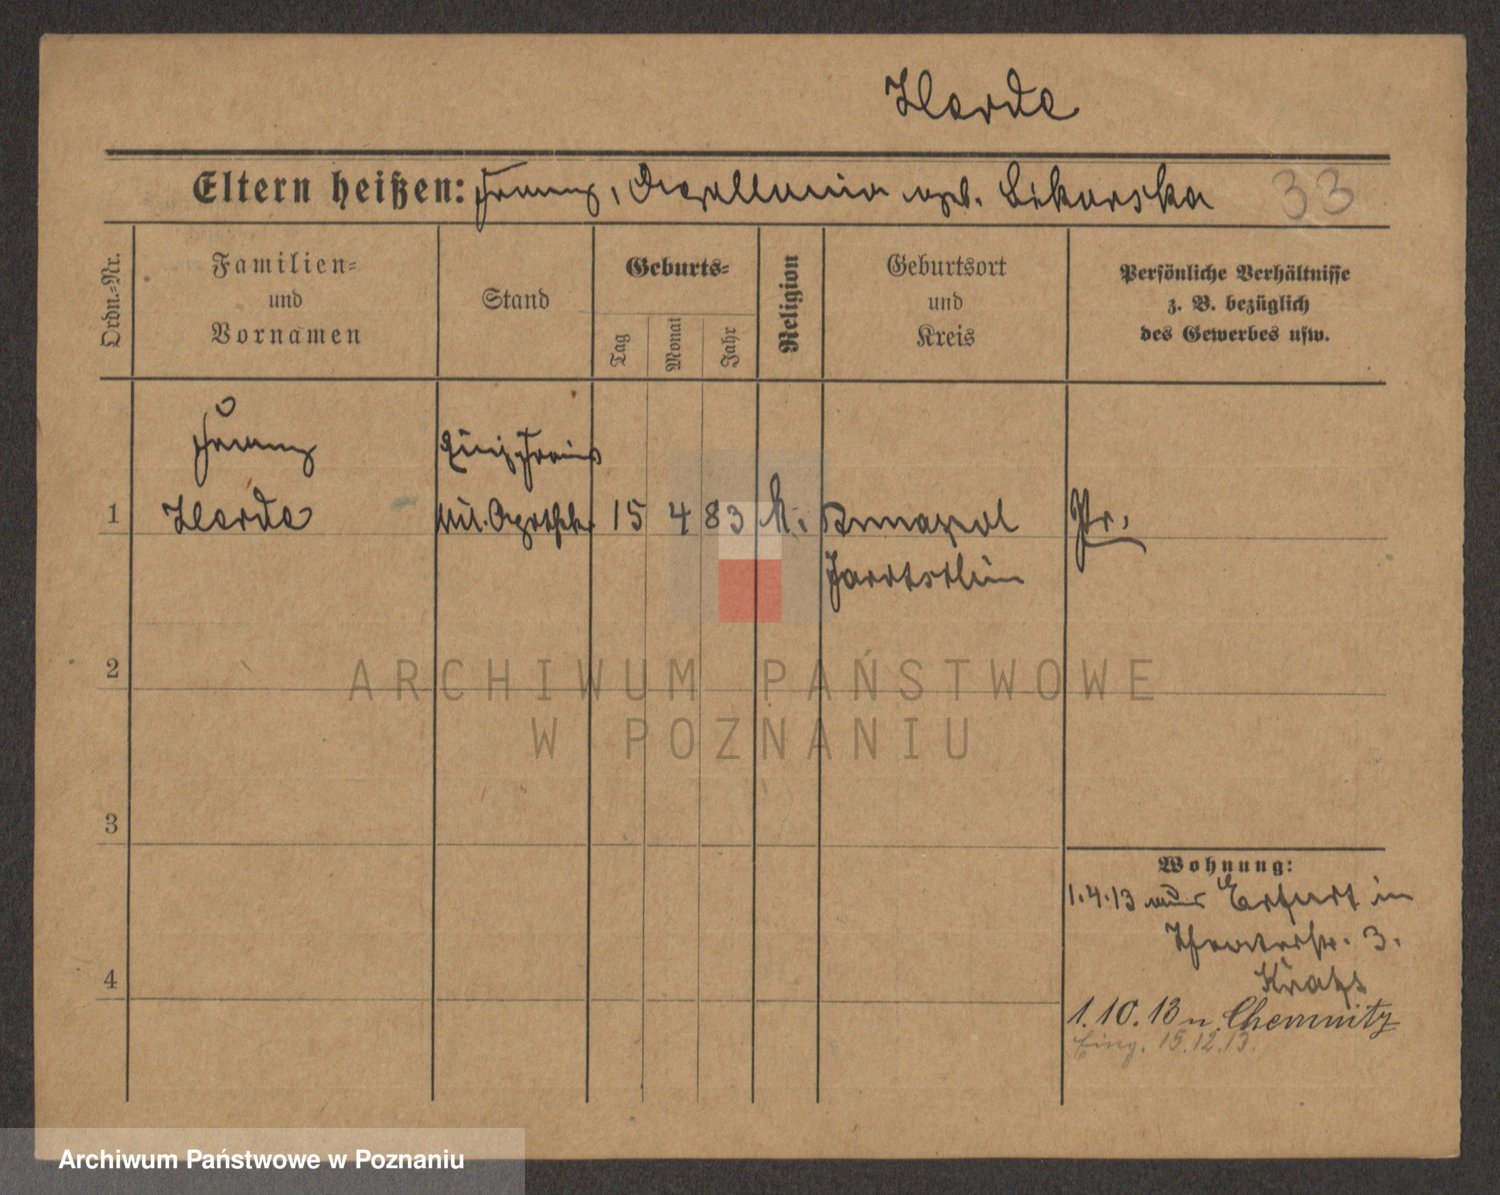 Warda
Eltern heißen: Franz, Apollonia geb. Sikorska 33
Ordn.-Nr.
Familien-
und
Vornamen
Stand
Geburts-
Tag
Monat
Jahr
Religion
Geburtsort
und
Kreis
Persönliche Verhältnisse
z. B. bezüglich
des Gewerbes usw.
Franz
Einj. Freiw.
1 Mil. Apothek. 15 4 83 k. Pr.
2
ARCHIWUM PAŃSTWOWE
W POZNANIU
3
Wohnung:
1.4.13 aus Erfurt in
Theaterstr. 3.
4
1.10.13 n. Chemnitz
Eing. 15.12.13.
Archiwum Państwowe w Poznaniu